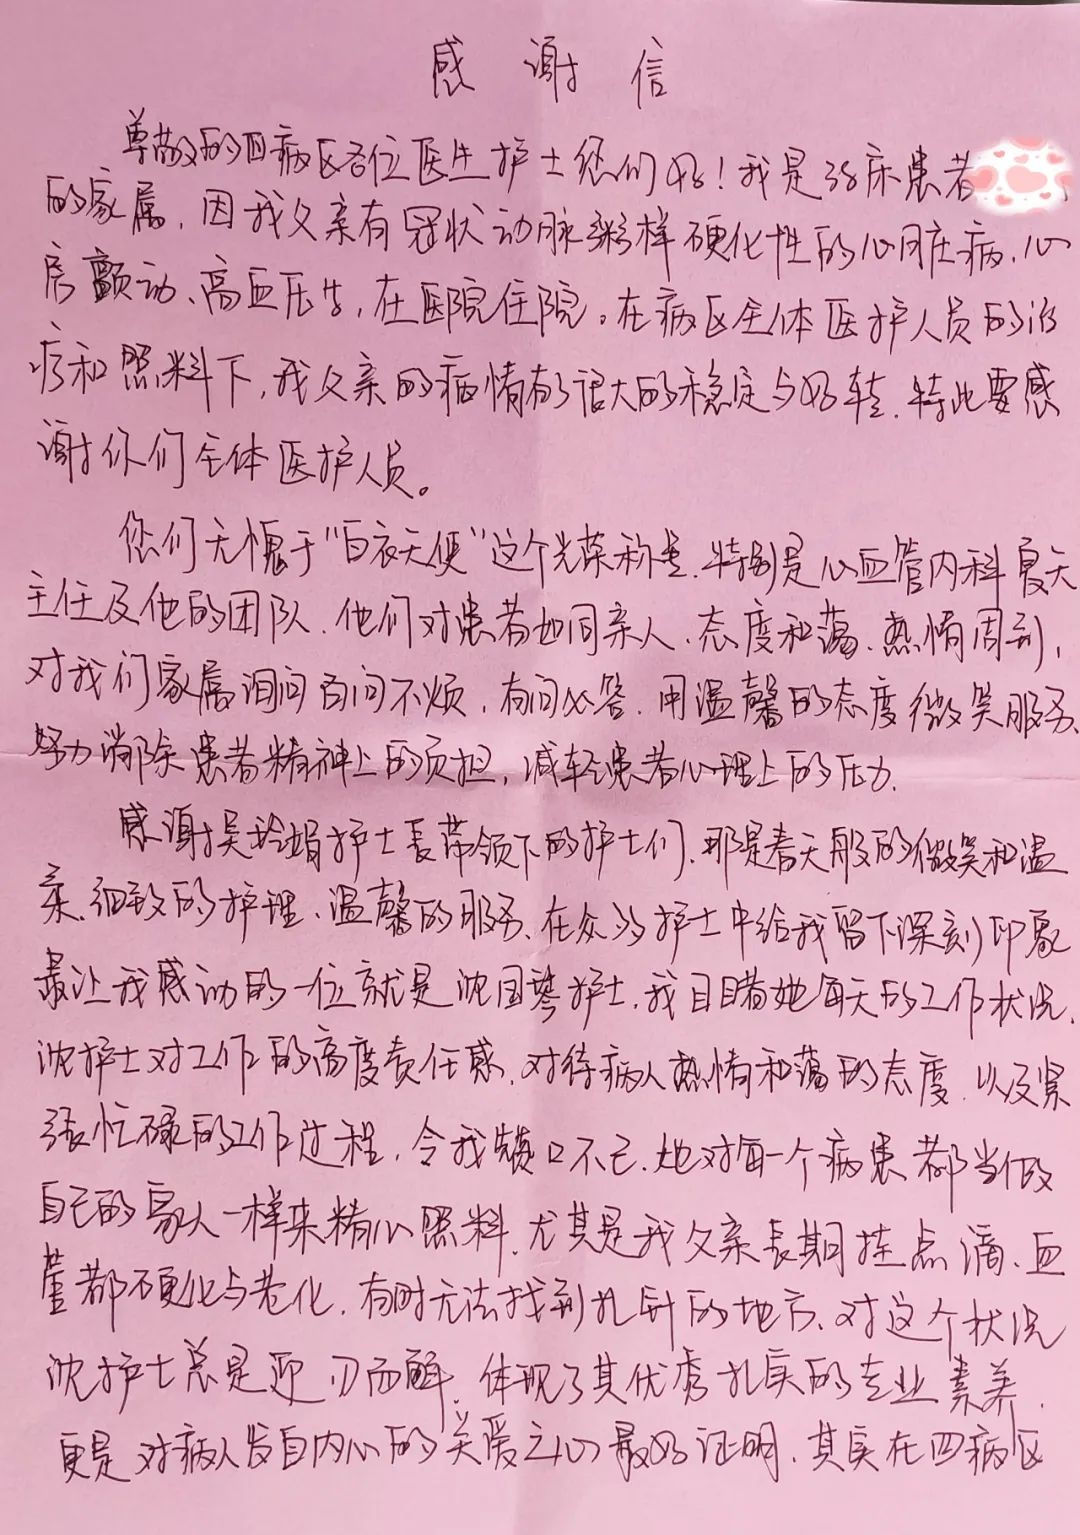 感谢信
尊敬的四病区各位医生护士您们好！我是38床患者
的家属，因我父亲有冠状动脉粥样硬化性的心脏病、心
房颤动、高血压等，在医院住院。在病区全体医护人员的治
疗和照料下，我父亲的病情有了很大的稳定与好转，特此要感
谢你们全体医护人员。
您们无愧于“白衣天使”这个光荣称号，特别是心血管内科夏天
主任及他的团队，他们对患者如同亲人、态度和蔼、热情周到，
对我们家属询问百问不烦，有问必答，用温馨的态度微笑服务、
努力消除患者精神上的负担，减轻患者心理上的压力。
感谢吴玲娟护士长带领下的护士们，那是春天般的微笑和温
柔、细致的护理、温馨的服务、在众多护士中给我留下深刻印象
最让我感动的一位就是沈国琴护士，我目睹她每天的工作状况，
沈护士对工作的高度责任感，对待病人热情和蔼的态度，以及紧
张忙碌的工作过程，令我赞口不已，她对每一个病患都当做
自己的家人一样来精心照料，尤其是我父亲长期挂点滴、血
管都硬化与老化，有时无法找到扎针的地方、对这个状况
沈护士总是迎刃而解，体现了其优秀扎实的专业素养，
更是对病人发自内心的关爱之心的最好证明，其实在四病区